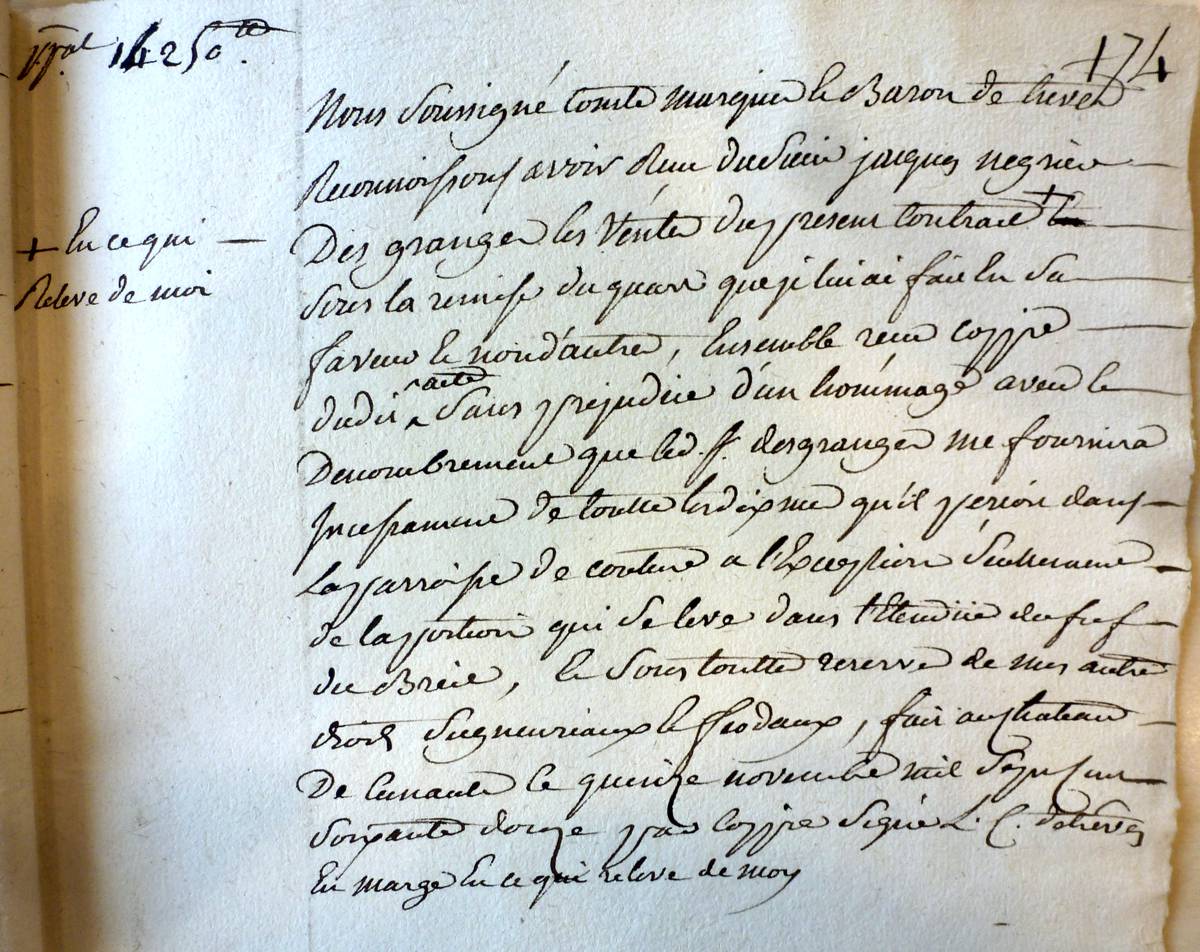 ppal 14250tt.
174
Nous Soussigné Comte marquis et Baron de
Reconnoissons avoir Recu du Sieur jacques negrier
Des granges les Ventes du present Contract +
Sous la remise du quart que je lui ai fait En Sa
faveur et non d'autre, Ensemble recu Coppie
dudit acte Sans prejudice d'un hommage aveu et
Denombrement que led. Sr. desgranges me fournira
Incessament de toutte la dixme qu'il percoit dans
La parroisse de couture a l'Exception Seullement
de la portion qui Se leve dans l'Etendüe du fief
du Breüil, et Sous toutte reserve de mes autre
droits Seigneuriaux et ffeodaux, fait au Chateau
De le quinze novembre mil Sept Cent
Soixante douze par Coppie Signé L. C.
En marge En ce qui releve de moy
+ En ce qui
Releve de moi